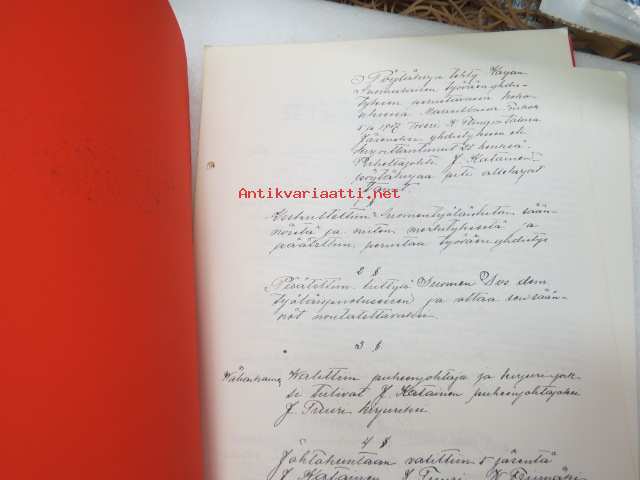 Pöytäkirja tehty Karjan
Suomalaisen työväenyhdis-
tyksen perustavassa koko-
uksessa
5 p 1907
Jäseneksi yhdistykseen oli
kirjoittautunut 25 henkeä
Puhetta johti J. Katainen
pöytäkirjaa piti allekirjot
tanut
Antikvariaatti.net
1 §
Keskusteltiin Suomen työläisten sään
nöistä ja niiten merkityksestä ja
päätettiin perustaa työväenyhdistys
2 §
Päätettiin liittyä Suomen Sos dem
työläispuolueeseen ja ottaa sen sään-
nöt noutatettavaksi.
3 §
Walittiin puheenjohtaja ja kirjuri jok-
si tulivat J. Katainen puheenjohtajaksi
J. Tuuri kirjuriksi
4 §
Johtokuntaan valittiin 5 jäsentä
J. Katainen J. Tuuri K